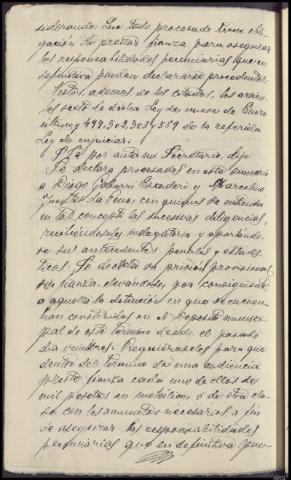 siderando: Que todo procesado tiene obli-
gación de prestar fianza para asegurar
las responsabilidades pecuniarias que en
definitiva puedan declararse procedentes.
Vistos, además de los citados, los artícu-
los sexto de dicha Ley de nueve de Enero
último y 497, 502, 503 y 589 de la referida
Ley de enjuiciar:
S. Sª por ante mi Secretario, dijo:
Se declara procesados en este sumario
a Diego Escudero y Marcelino
de Penas con quienes se entiendan
en tal concepto las sucesivas diligencias,
recibiéndoseles indagatoria y aportándo-
se sus antecedentes penales y
Se decreta su prisión provisional
sin fianza, elevándose, por consiguiente
a aquella la detención en que se encuen-
tran constituidos en el Deposito munici-
pal de este término desde el pasado
dia Requiéraseles para que
dentro del termino de una audiencia
preste fianza cada uno de ellos de
mil pesetas en metálico ó de otra cla-
se con los aumentos necesarios, a fin
de asegurar las responsabilidades
pecuniarias que en definitiva pue-